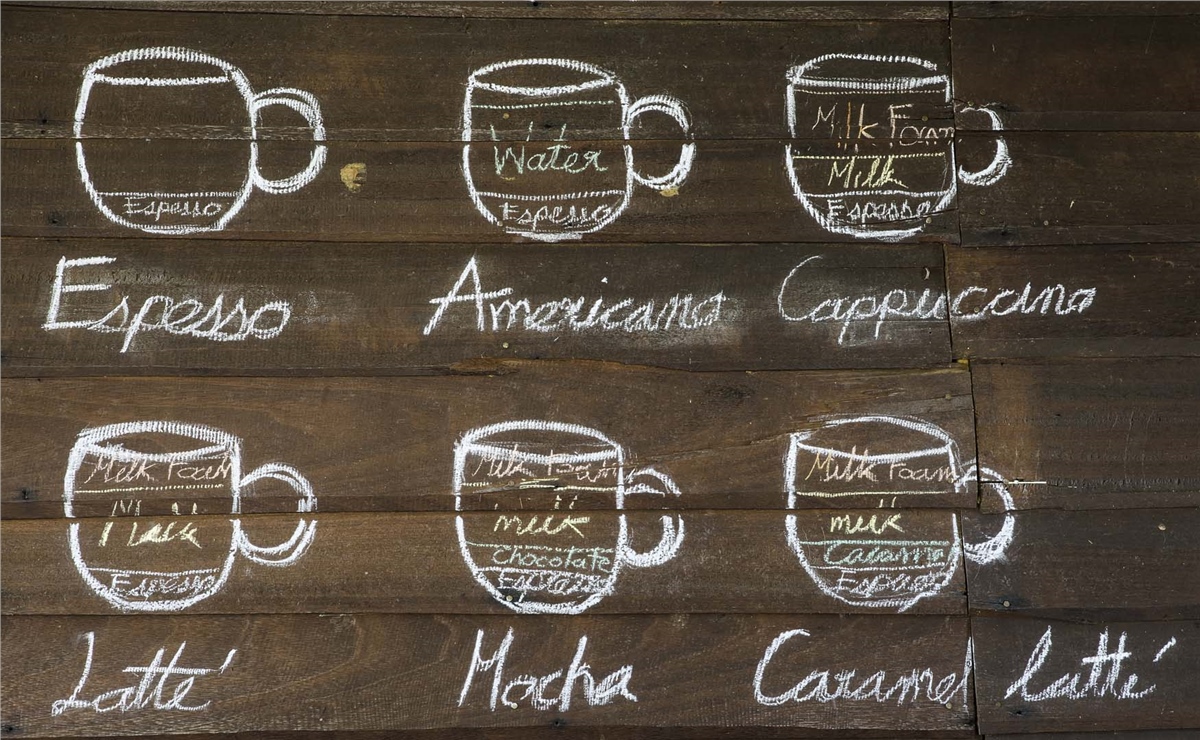 Espesso
Water
Espesso
Milk Foam
Milk
Espesso
Espesso
Americano
Cappuccino
Milk Foam
Milk
Espesso
Milk Foam
milk
Chocolate
Espesso
Milk Foam
milk
Caramel
Espesso
Latté
Mocha
Caramel latté